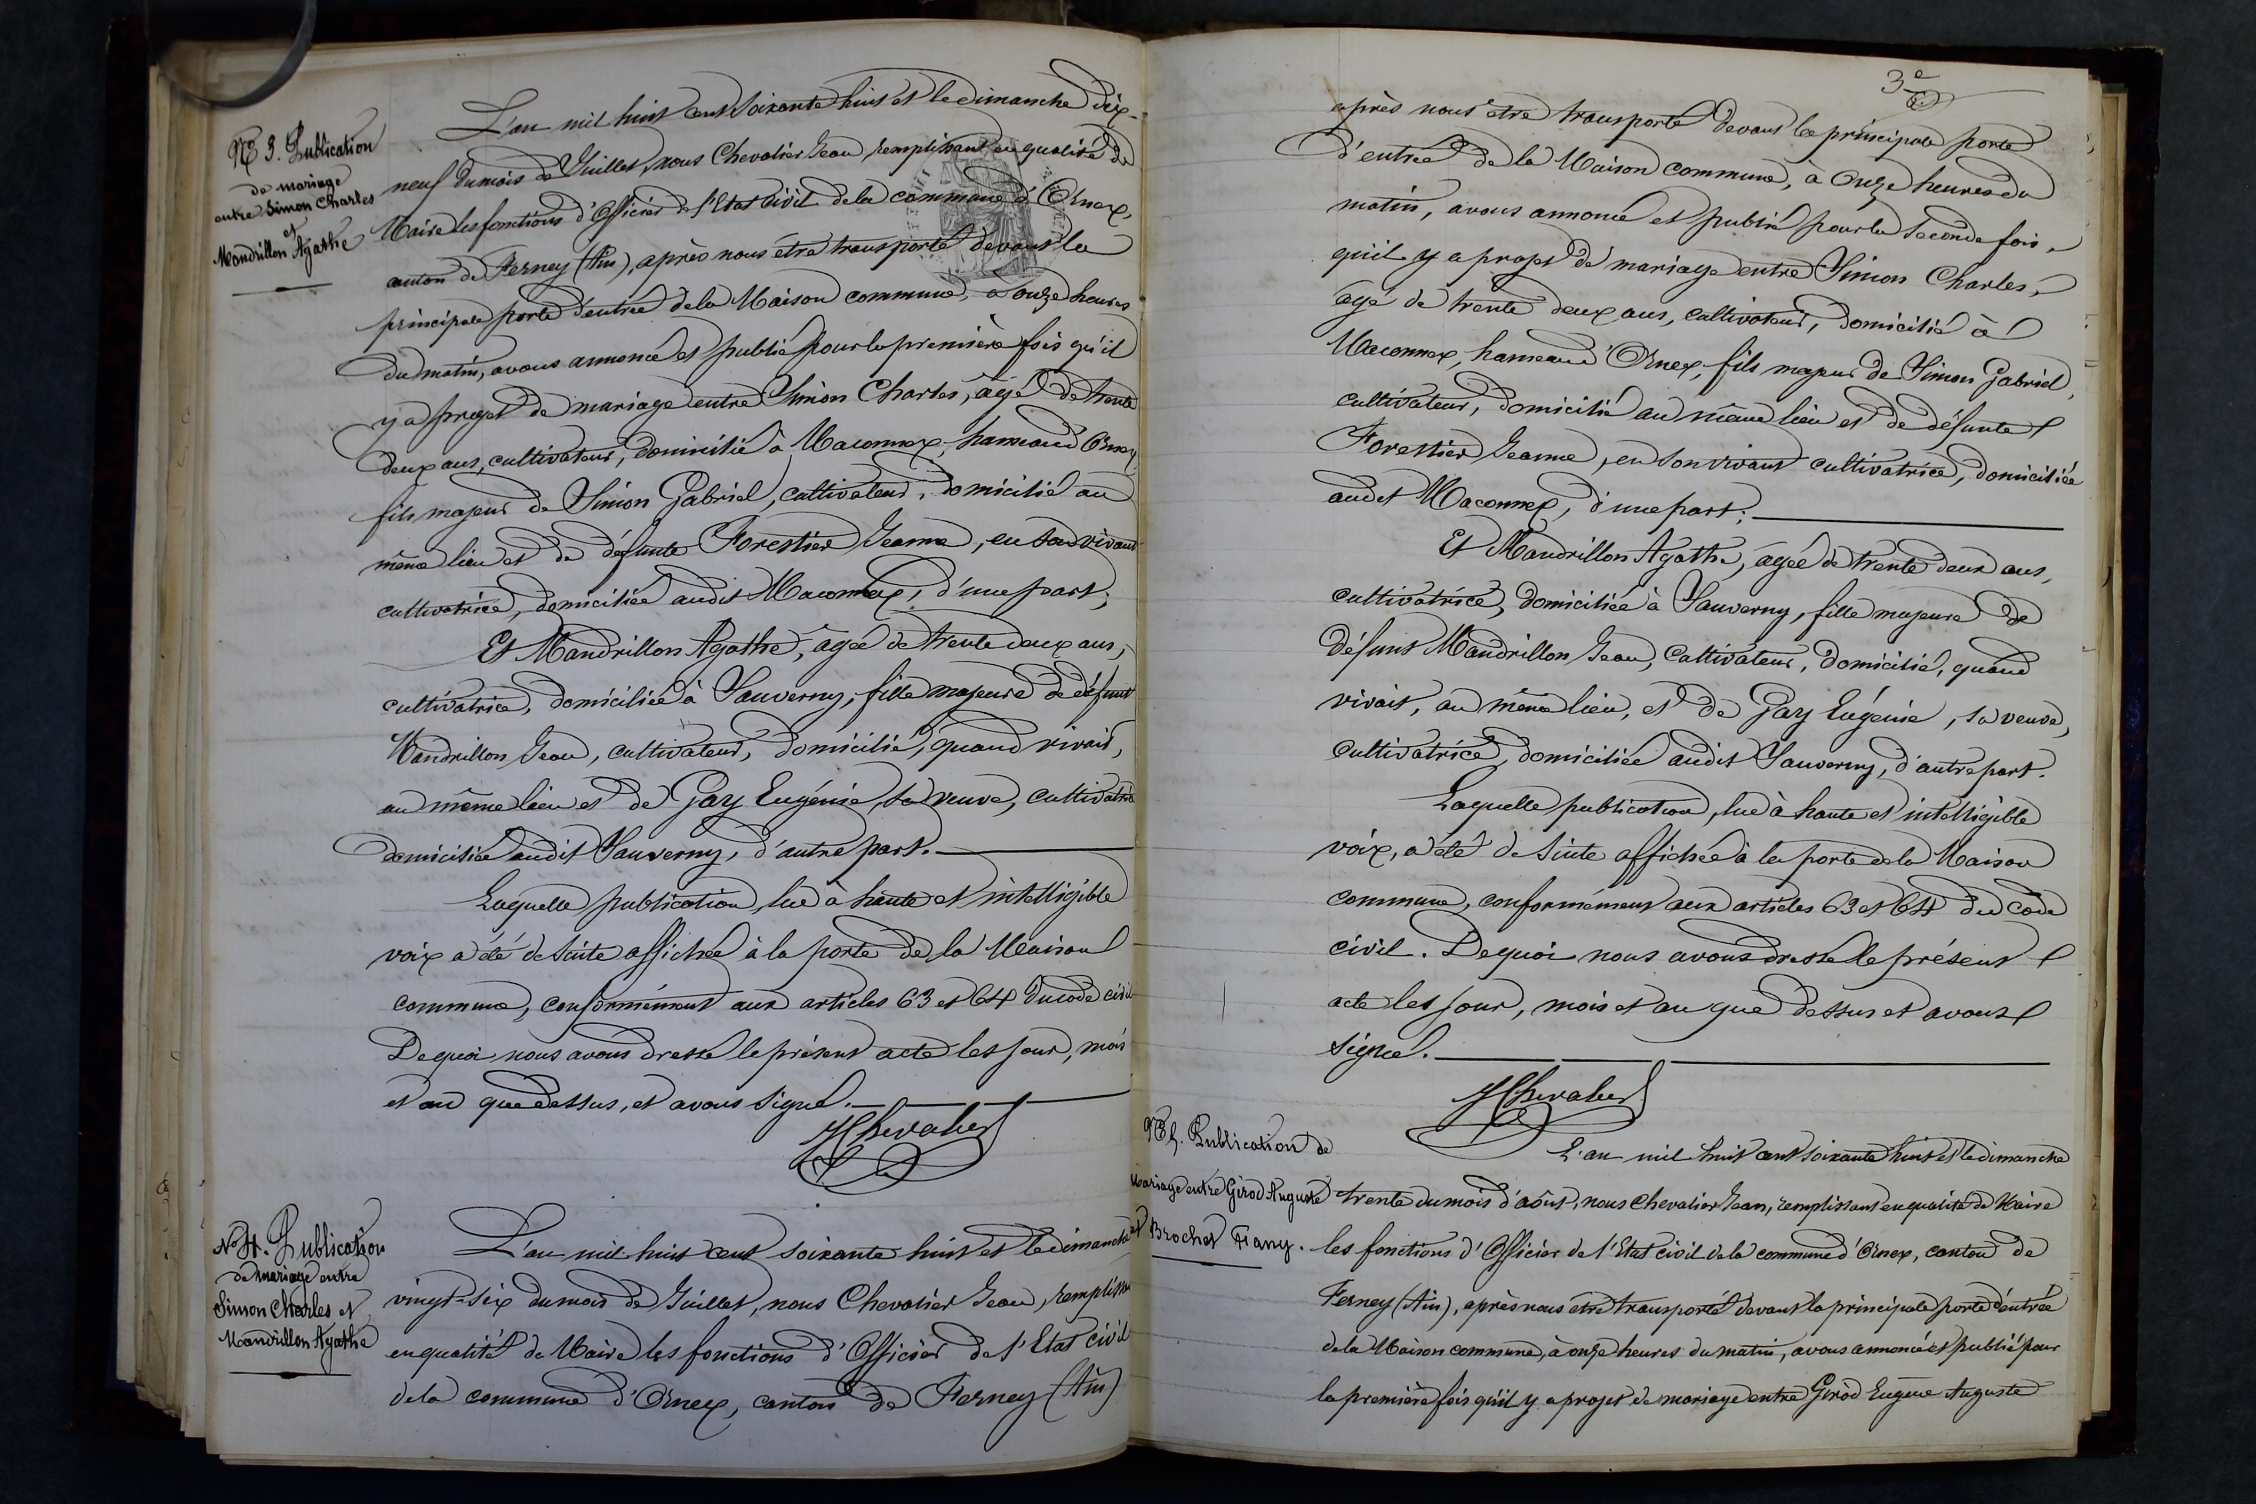 N° 3. Publication
de mariage
entre Simon Charles
et
Mandrillon Agathe
L'an mil huit cent soixante huit et le dimanche dix-
neuf du mois de Juillet, nous Chevalier Jean remplissant en qualité de
Maire les fonctions d'Officier de l'Etat civil de la commune d'Ornex,
canton de Ferney (Ain), après nous être transporté devant la
principale porte d'entrée de la Maison commune, à onze heures
du matin, avons annoncé et publié pour la première fois qu'il
y a projet de mariage entre Simon Charles, âgé de trente
deux ans, cultivateur, domicilié à Maconnex, hameau d'Ornex,
fils majeur de Simon Gabriel, cultivateur, domicilié au
même lieu et de défunte Forestier Jeanne, en son vivant
cultivatrice, domiciliée audit Maconnex, d'une part;
Et Mandrillon Agathe, âgée de trente deux ans,
cultivatrice, domiciliée à Sauverny, fille majeure de défunt
Mandrillon Jean, cultivateur, domicilié, quand vivait,
au même lieu et de Gay Eugénie, sa veuve, cultivatrice
domiciliée audit Sauverny, d'autre part.
Laquelle publication, lue à haute et intelligible
voix a été de suite affichée à la porte de la Maison
commune, conformément aux articles 63 et 64 du code civil
De quoi nous avons dressé le présent acte les jour, mois
et an que dessus, et avons signé.
JChevalier
N° 4. Publication
de mariage entre
Simon Charles et
Mandrillon Agathe
L'an mil huit cent soixante huit et le dimanche
vingt-six du mois de Juillet, nous Chevalier Jean, remplissant
en qualité de Maire les fonctions d'Officier de l'Etat civil
de la commune d'Ornex, canton de Ferney (Ain)
3e
après nous être transporté devant la principale porte
d'entrée de la Maison commune, à onze heures du
matin, avons annoncé et publié pour la seconde fois,
qu'il y a projet de mariage entre Simon Charles,
âgé de trente deux ans, cultivateur, domicilié à
Maconnex, hameau d'Ornex, fils majeur de Simon Gabriel,
cultivateur, domicilié au même lieu et de défunte
Forestier Jeanne, en son vivant cultivatrice, domiciliée
audit Maconnex, d'une part;
Et Mandrillon Agathe, âgée de trente deux ans,
cultivatrice, domiciliée à Sauverny, fille majeure de
défunt Mandrillon Jean, cultivateur, domicilié, quand
vivait, au même lieu, et de Gay Eugénie, sa veuve,
cultivatrice, domiciliée audit Sauverny, d'autre part.
Laquelle publication, lue à haute et intelligible
voix, a été de suite affichée à la porte de la Maison
commune, conformément aux articles 63 et 64 du code
civil. De quoi nous avons dressé le présent
acte les jour, mois et an que dessus et avons
signé.
JChevalier
N° 5. Publication de
mariage entre Girod Auguste
et Brochet Fany.
L'an mil huit cent soixante huit et le dimanche
trente du mois d'août, nous Chevalier Jean, remplissant en qualité de Maire
les fonctions d'Officier de l'Etat civil de la commune d'Ornex, canton de
Ferney (Ain), après nous être transporté devant la principale porte d'entrée
de la Maison commune, à onze heures du matin, avons annoncé et publié pour
la première fois qu'il y a projet de mariage entre Girod Eugène Auguste